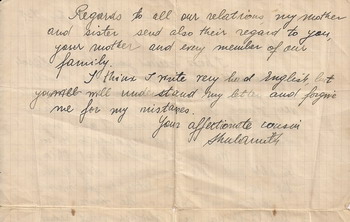 Regards to all our relations my mother
and sister send also their regard to you,
your mother and every member of our
family.
I think I write very bad English, but
you will understand my letter and forgive
me for my mistakes.
Your affectionate cousin
Shulamith